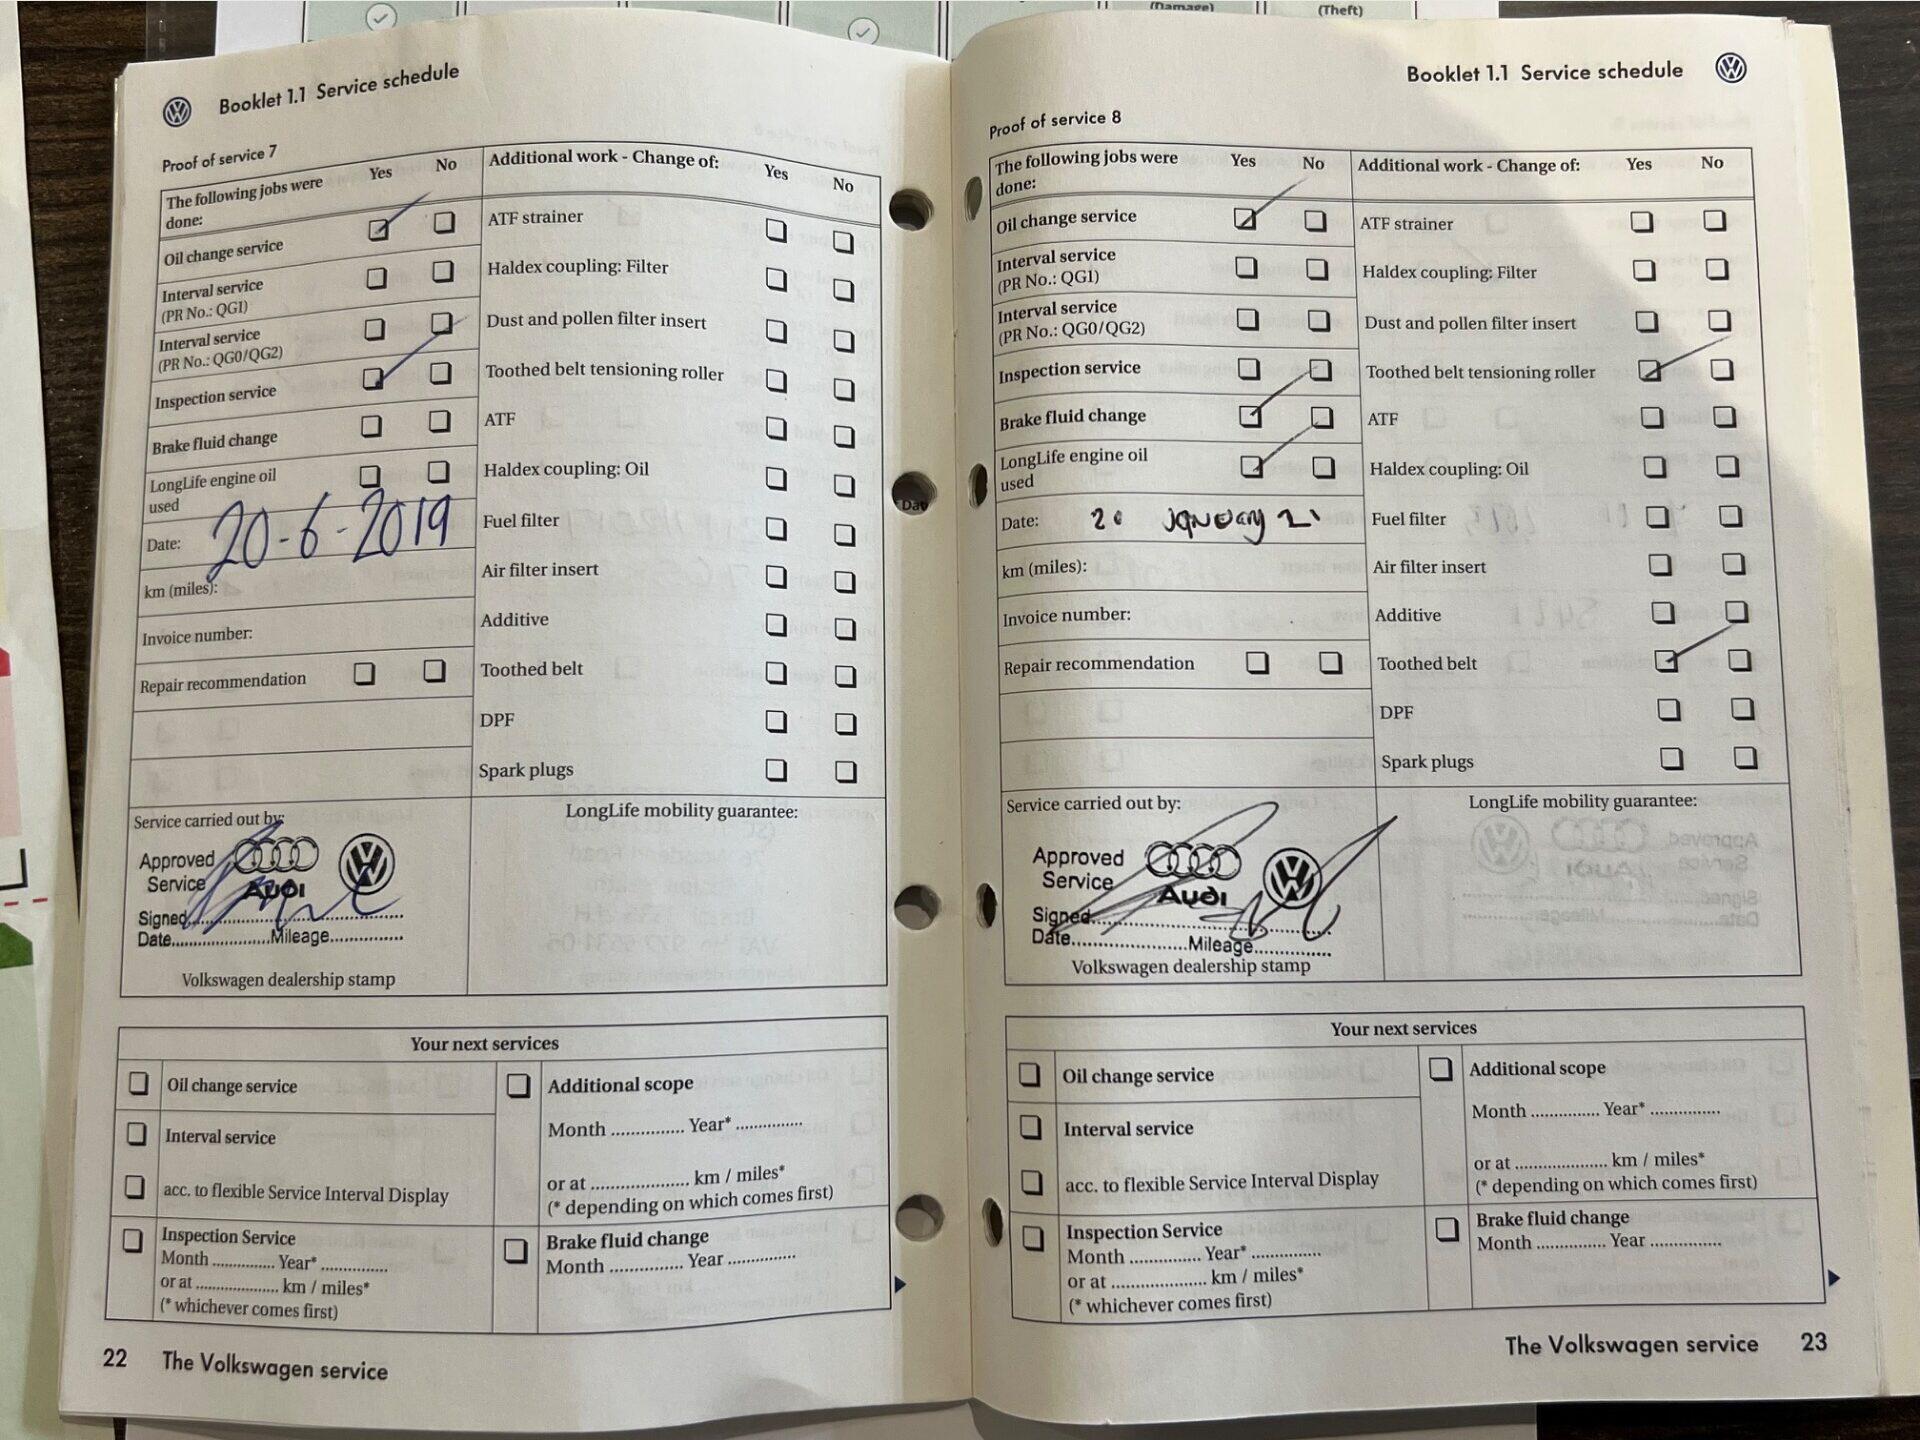 (Damage)
(Theft)
Booklet 1.1 Service schedule
Proof of service 7
The following jobs were done:
Yes
No
Additional work - Change of:
Yes
No
Oil change service
Interval service
(PR No.: QG1)
Interval service
(PR No.: QG0/QG2)
Inspection service
Brake fluid change
LongLife engine oil
used
Date: 20-6-2019
km (miles):
Invoice number:
Repair recommendation
ATF strainer
Haldex coupling: Filter
Dust and pollen filter insert
Toothed belt tensioning roller
ATF
Haldex coupling: Oil
Fuel filter
Air filter insert
Additive
Toothed belt
DPF
Spark plugs
Service carried out by:
Approved
Service
Audi
Signed
Date Mileage
Volkswagen dealership stamp
LongLife mobility guarantee:
Your next services
Oil change service
Interval service
acc. to flexible Service Interval Display
Inspection Service
Month ............. Year* ..............
or at .................... km / miles*
(* whichever comes first)
Additional scope
Month ............... Year* ..............
or at .................... km / miles*
(* depending on which comes first)
Brake fluid change
Month ............... Year ..............
22 The Volkswagen service
Booklet 1.1 Service schedule
Proof of service 8
The following jobs were
done:
Yes
No
Additional work - Change of:
Yes
No
Oil change service
Interval service
(PR No.: QG1)
Interval service
(PR No.: QG0/QG2)
Inspection service
Brake fluid change
LongLife engine oil
used
Date: 20 January 21
km (miles):
Invoice number:
Repair recommendation
ATF strainer
Haldex coupling: Filter
Dust and pollen filter insert
Toothed belt tensioning roller
ATF
Haldex coupling: Oil
Fuel filter
Air filter insert
Additive
Toothed belt
DPF
Spark plugs
Service carried out by:
Approved
Service
Audi
Signed
Date Mileage
Volkswagen dealership stamp
LongLife mobility guarantee:
Your next services
Oil change service
Interval service
acc. to flexible Service Interval Display
Inspection Service
Month ............... Year* ..............
or at .................... km / miles*
(* whichever comes first)
Additional scope
Month .............. Year* ..............
or at .................... km / miles*
(* depending on which comes first)
Brake fluid change
Month .............. Year ..............
The Volkswagen service 23